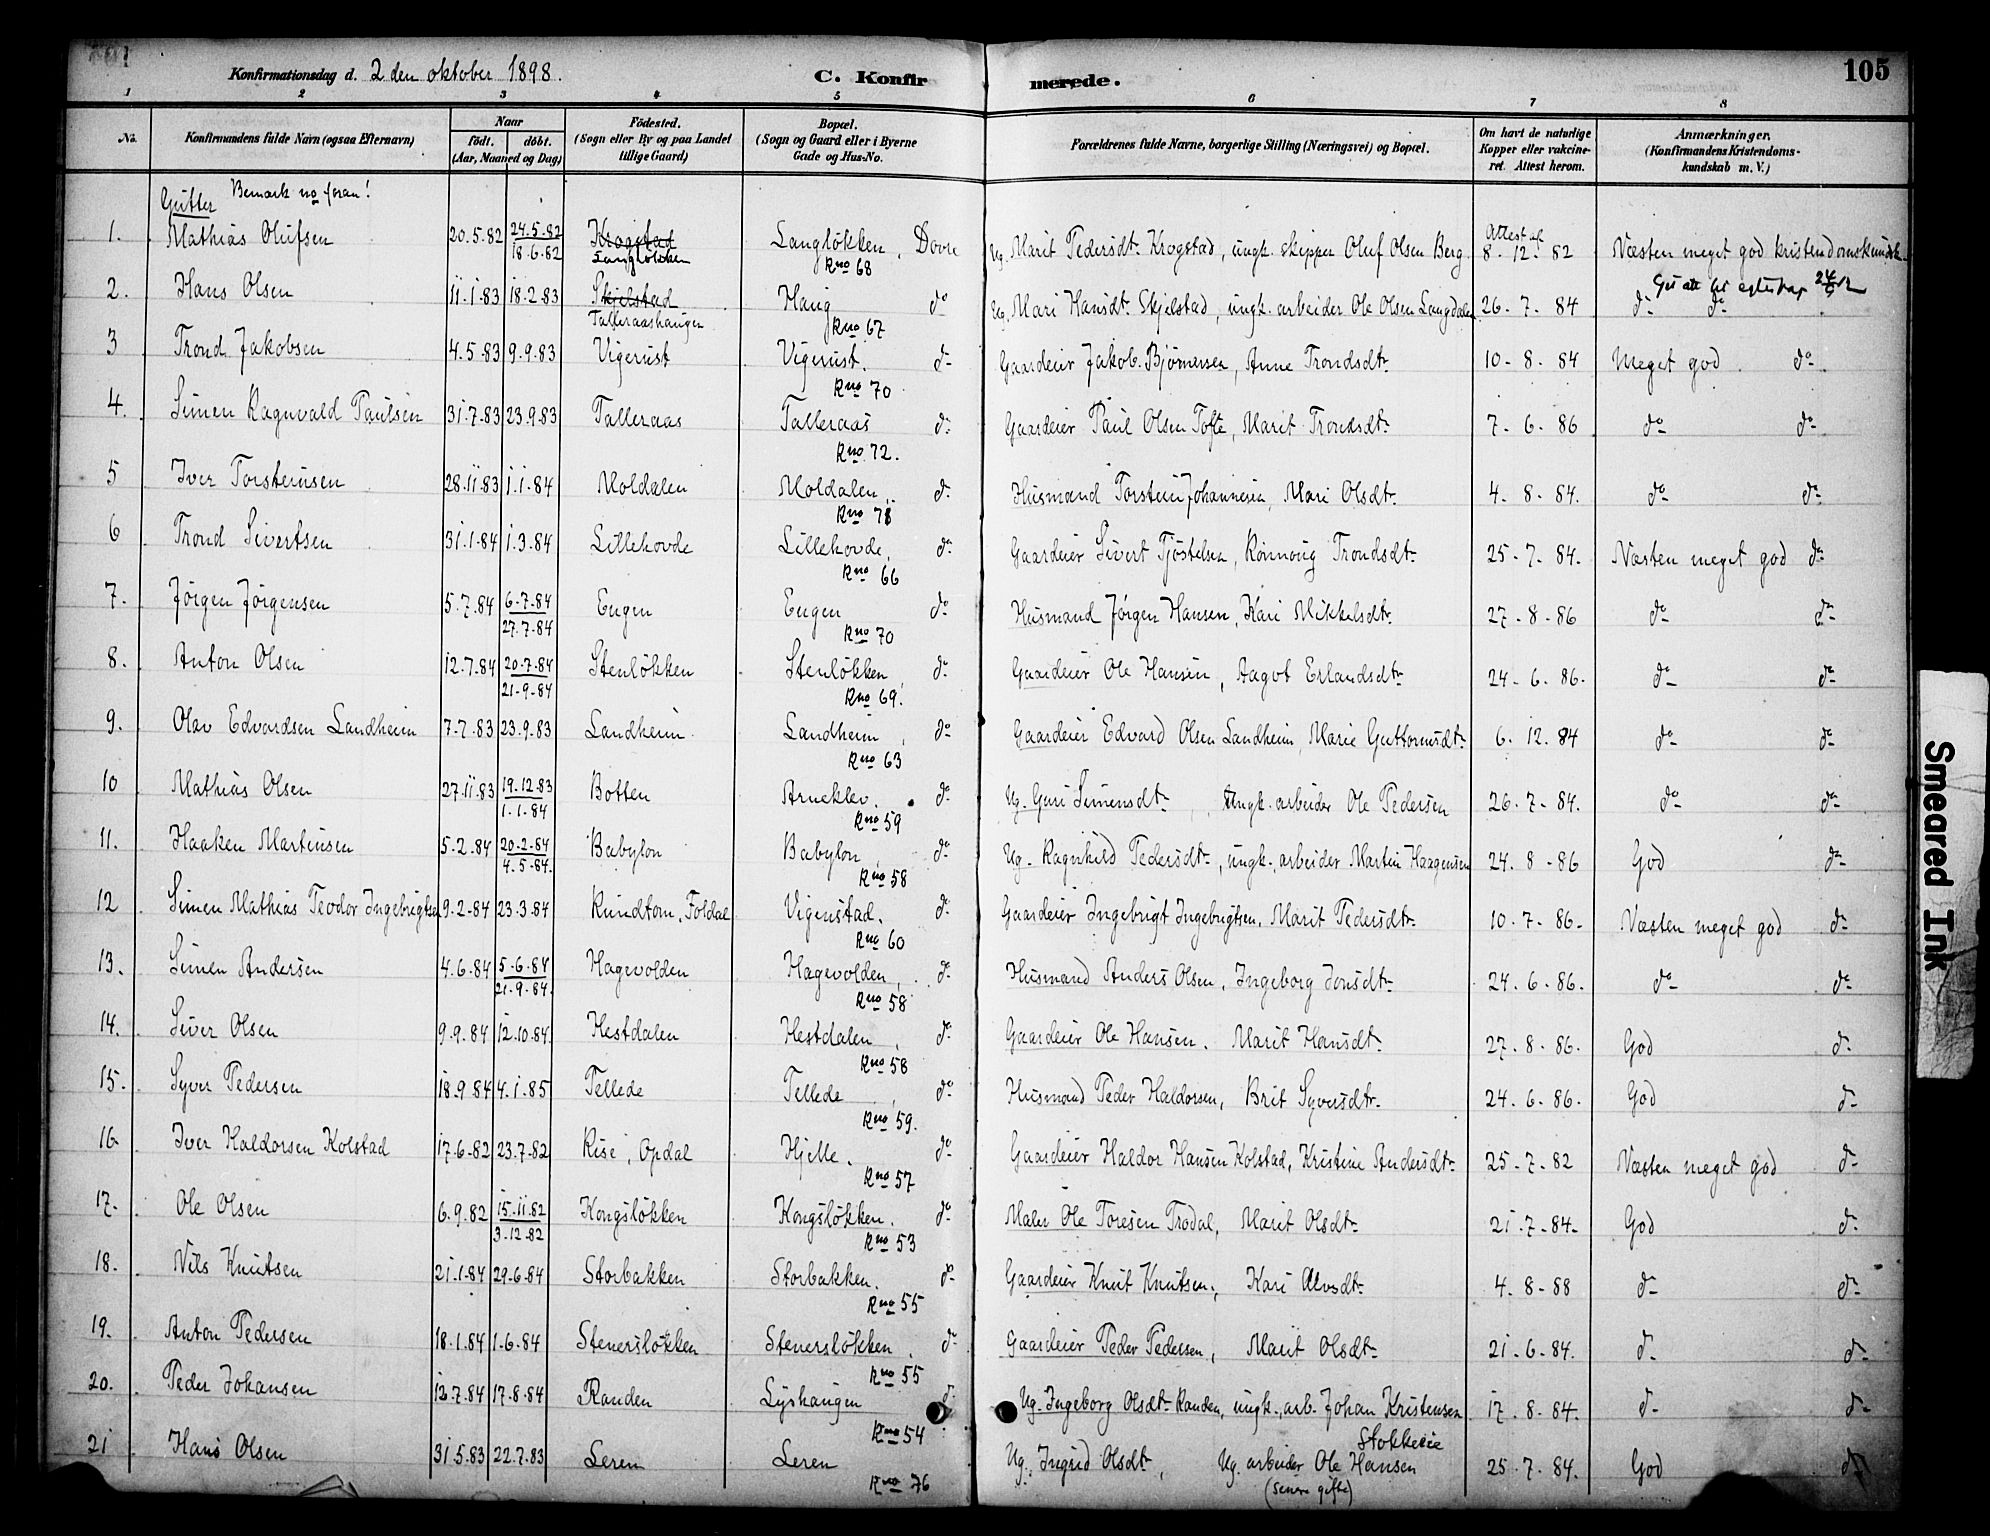 105
Konfirmationsdag d. 2 den oktober 1898. C. Konfirmerede.
1 2 3 4 5 6 7 8
No. Konfirmandens fulde Navn (ogsaa Efternavn) Naar födt. döbt. (Aar, Maaned og Dag) Födested. (Sogn eller By og paa Landet tillige Gaard) Bopæl. (Sogn og Gaard eller i Byerne Gade og Hus-No. Forældrenes fulde Navne, borgerlige Stilling (Næringsvei) og Bopæl. Om havt de naturlige Kopper eller vakcineret. Attest herom. Anmærkninger. (Konfirmandens Kristendomskundskab m. V.)
Gutter Bemærk no foran!
1. Mathias Olufsen 20.5.82 24.5.82 18.6.82 Krogstad Langløkken Langløkken, Dovre Rno 68 Ug. Marit Pedersdtr Krogstad, ungk. skipper Oluf Olsen Berg. Attest af 8-12-82 Næsten meget god kristendomskundsk.
2. Hans Olsen 11.1.83 18.2.83 Skjelstad Talleraashaugen Haug do Rno 67 Ug. Mari Hansdt. Skjelstad, ungk. arbeider Ole Olsen Langdalen 26-7-84 do do
3 Trond Jakobsen 4.5.83 9.9.83 Vigerust Vigerust. do Rno 70 Gaardeier Jakob Bjørnersen, Anne Trondsdtr 10-8-84 Meget god do
4. Simen Ragnvald Paulsen 31.7.83 23.9.83 Talleraas Talleraas do Rno 72. Gaardeier Paul Olsen Tofte, Marit Trondsdtr 7-6-86 do do
5 Iver Torsteinsen 28.11.83 1.1.84 Moldalen Moldalen, do Rno 78 Husmand Torstein Johannesen, Mari Olsdtr 4-8-84. do do
6 Trond Sivertsen 31.1.84 1.3.84 Lillehovde Lillehovde, do Rno 66 Gaardeier Sivert Tjøstelsen, Rønnoug Trondsdtr 25-7-84. Næsten meget god do
7. Jørgen Jørgensen 5.7.84 6.7.84 27.7.84 Engen Engen do Rno 70 Husmand Jørgen Hansen, Kari Mikkelsdtr 27-8-86 do do
8. Anton Olsen 12.7.84 20.7.84 21.9.84 Stenløkken Stenløkken, do Rno 69. Gaardeier Ole Hansen, Aagot Erlandsdtr 24-6-86. do do
9. Olav Edvardsen Landheim 7.7.83 23.9.83 Landheim Landheim, do Rno 63 Gaardeier Edvard Olsen Landheim, Marie Guttormsdtr 6.12.84 do do
10 Mathias Olsen 27.11.83 19.12.83 1.1.84 Botten Arneklev. do Rno 59 Ug. Guri Simensdtr, Ungk. arbeider Ole Pedersen 26-7-84. do do
11. Haaken Martinsen 5.2.84 20.2.84 4.5.84. Babylon Babylon, do Rno 58 Ug. Ragnhild Pedersdtr, ungk. arbeider Martin Haagensen 24.8-86 God do
12 Simen Mathias Teodor Ingebrigtsen 9.2.84 23.3.84 Rundtom, Foldal Vigenstad. do Rno 60 Gaardeier Ingebrigt Ingebrigtsen, Marit Pedersdtr 10.7-86. Næsten meget god do
13. Simen Andersen 4.6.84 5.6.84 21.9.84. Hagevolden Hagevolden, do Rno 58 Husmand Anders Olsen, Ingeborg Jonsdtr 24.6-86. do do
14. Siver Olsen 9.9.84 12.10.84. Hestdalen Hestdalen, do Rno 58 Gaardeier Ole Hansen. Marit Hansdtr. 27.8-86. God do
15. Syver Pedersen 18.9.84 4.1.85 Tellede Tellede, do Rno 59. Husmand Peder Haldorsen, Brit Syversdtr. 24.6.86. God do
16. Iver Haldorsen Kolstad 17.6.82 23.7.82 Rise, Opdal Hjelle. do Rno 57 Gaardeier Haldor Hansen Kolstad, Kristine Andersdtr 25-7-82 Næsten meget god do
17. Ole Olsen 6.9.82 15.11.82 3.12.82 Kongsløkken Kongsløkken. do Rno 53 Maler Ole Toresen Trodal, Marit Olsdtr 21.7-84- God do
18. Nils Knutsen 21.1.84 29.6.84 Storbakken Storbakken. do Rno 55 Gaardeier Knut Knutsen, Kari Alvsdtr. 4.8-88 do do
19. Anton Pedersen 18.1.84 1.6.84 Stenersløkken Stenersløkken. do Rno 55 Gaardeier Peder Pedersen, Marit Olsdtr 21.6.84. do do
20. Peder Johansen 12.7.84 17.8.84 Randen Lyshaugen do Rno 54 Ug. Ingeborg Olsdtr Randen, ungk. arb. Johan Kristensen 17.8.84. do do
21 Hans Olsen 31.5.83 22.7.83 Leren Leren Rno 76 Ug. Ingrid Olsdtr, Ug. arbeider Ole Hansen Stokkeie (senere gifte) 25.7.84. God do
Smeared Ink